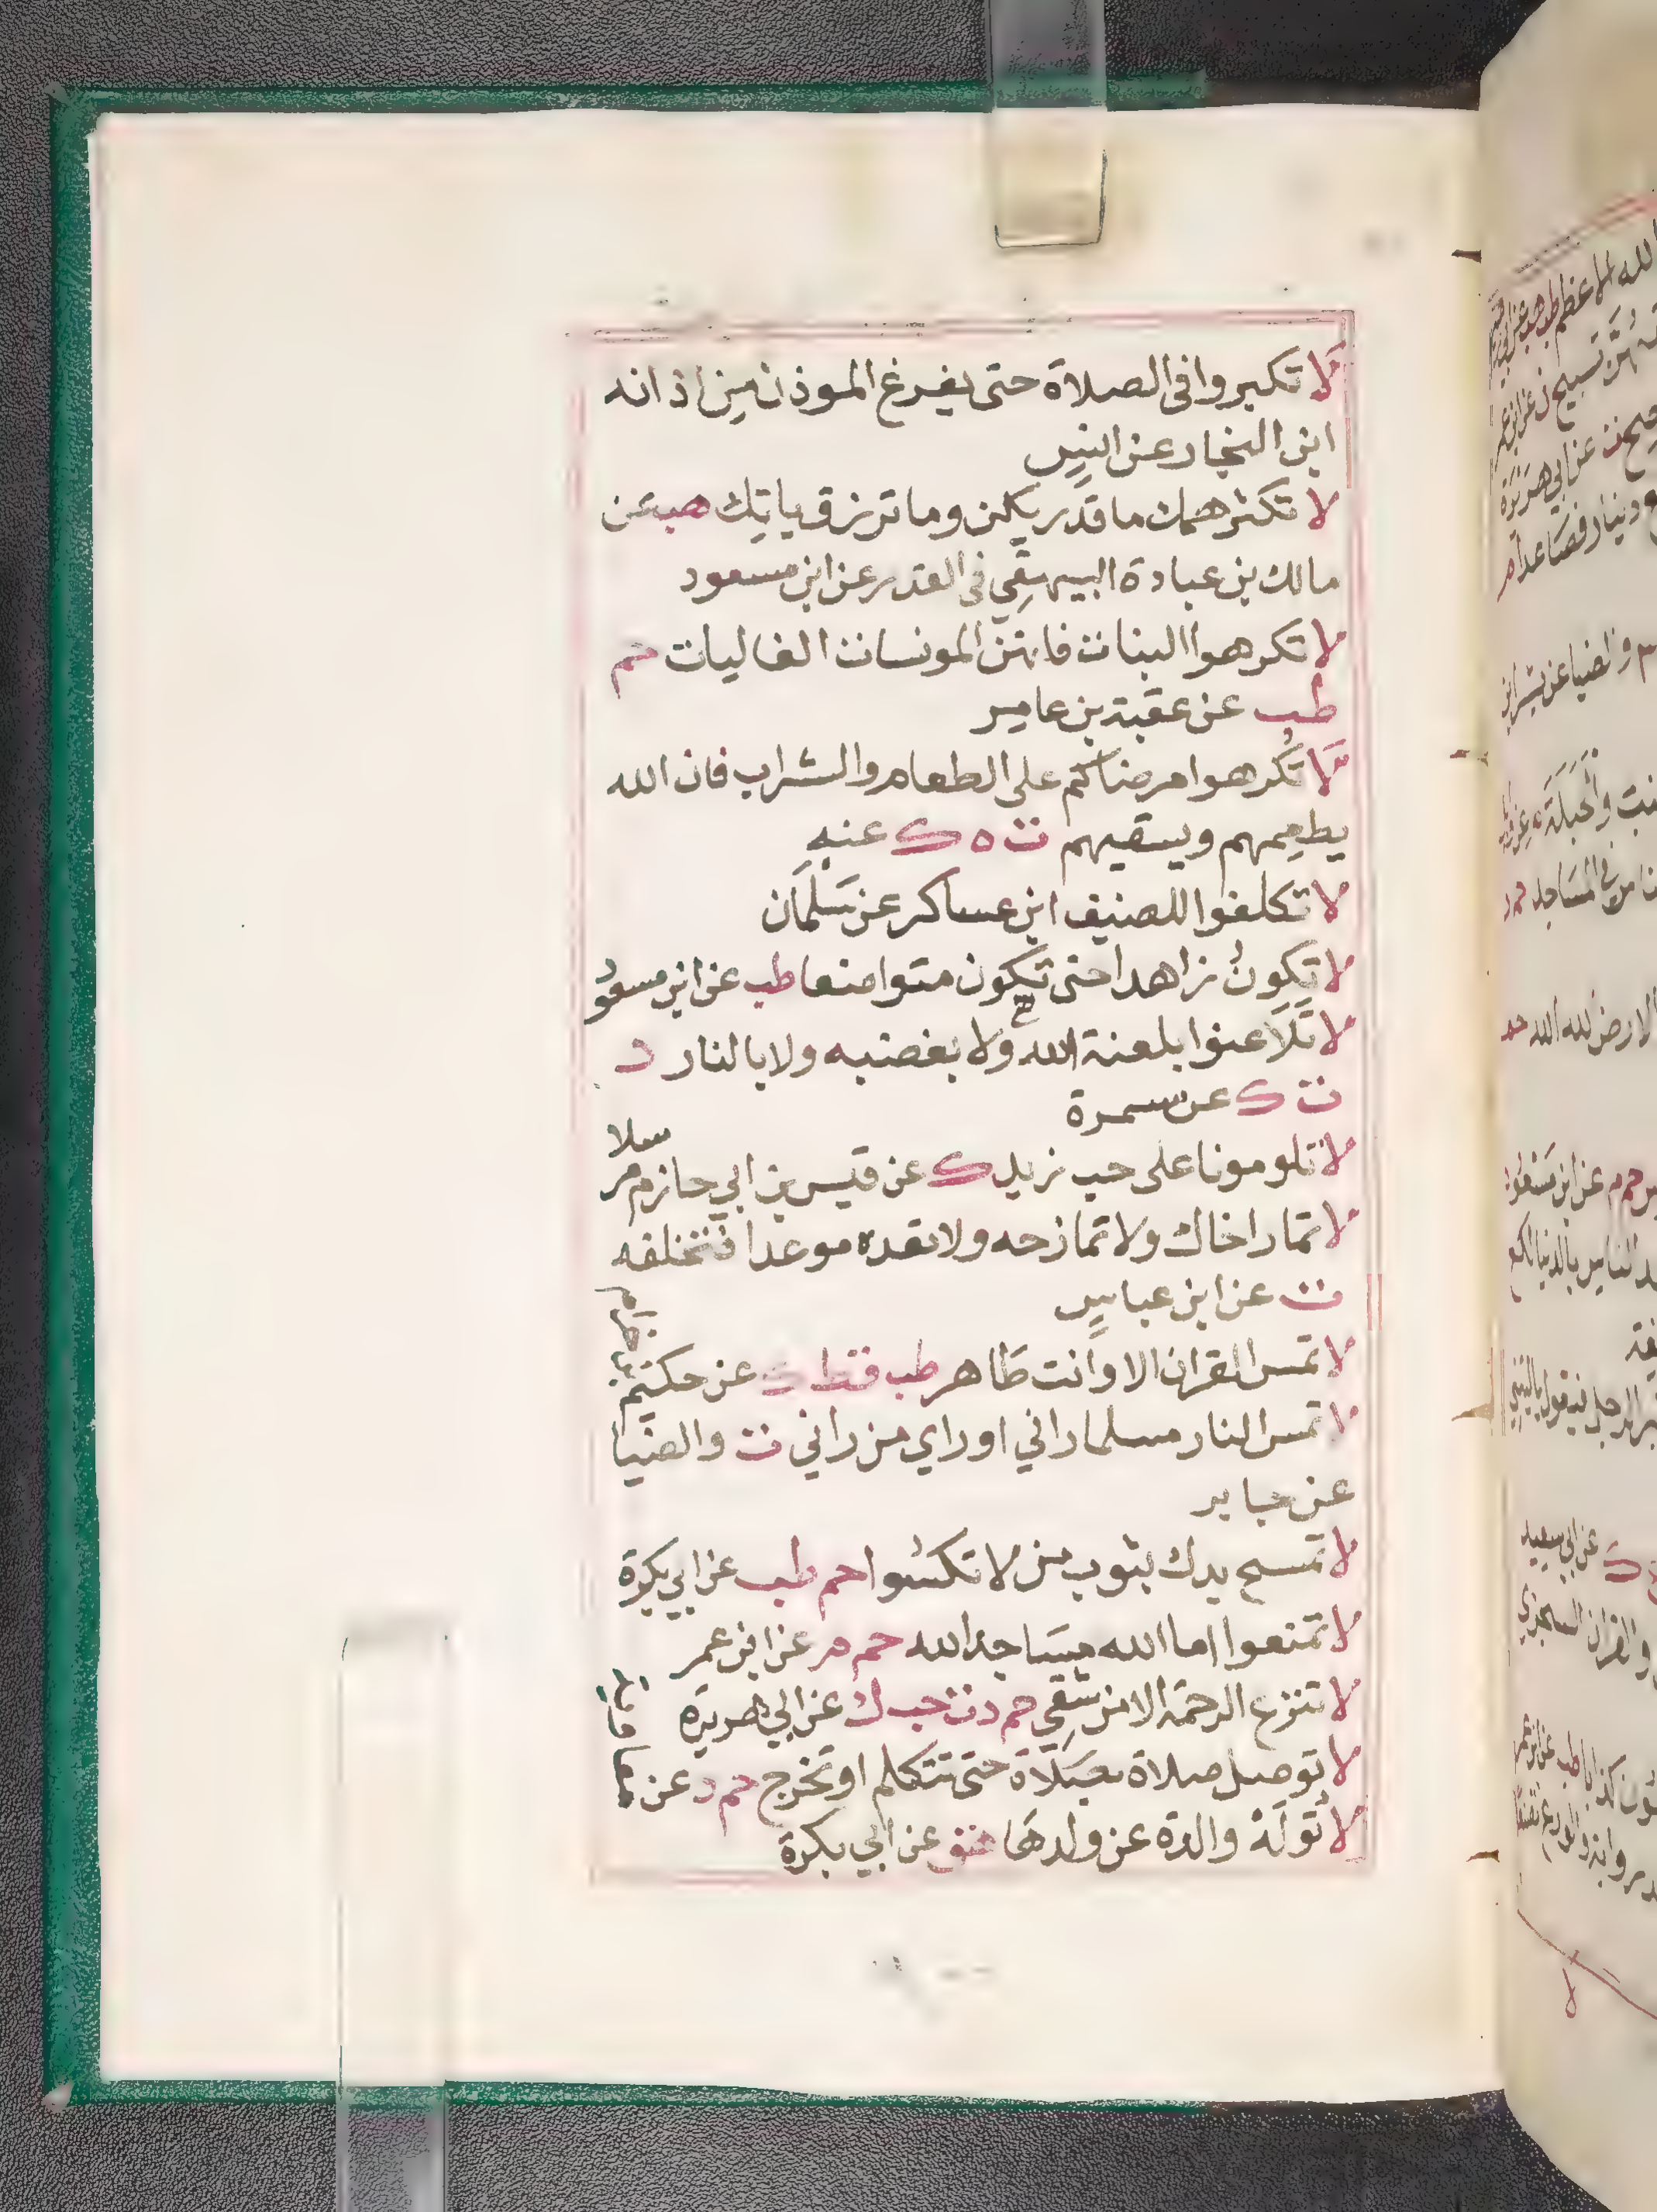 لا تكبروا في الصلاة حتى يفرغ الموذن من اذانه
ابن النجار عن انس
لا تكثر همك ما قدر يكن وما ترزق ياتك هب عن
مالك بن عبادة البيهقي في القدر عن ابن مسعود
لا تكرهوا البنات فانهن المونسات الغاليات حم
طب عن عقبة بن عامر
لا تكرهوا مرضاكم على الطعام والشراب فان الله
يطعمهم ويسقيهم ت ه ك عنه
لا تكلفوا للضيف ابن عساكر عن سلمان
لا تكون زاهدا حتى تكون متواضعا طب عن ابن مسعود
لا تلاعنوا بلعنة الله ولا بغضبه ولا بالنار د
ت ك عن سمرة
لا تلومونا على حب زيد ك عن قيس بن ابي حازم مرسلا
لا تمار اخاك ولا تمازحه ولا تعده موعدا فتخلفه
ت عن ابن عباس
لا تمس القران الا وانت طاهر طب قط ك عن حكيم
لا تمس النار مسلما راني او راي من راني ت والضيا
عن جابر
لا تمسح يدك بثوب من لا تكسوا حم طب عن ابي بكرة
لا تمنعوا اما الله مساجد الله حم م عن ابن عمر
لا تنزع الرحمة الا من شقي حم د ت حب ك عن ابي هريرة
لا توصل صلاة بصلاة حتى تتكلم او تخرج حم د عن
لا توله والدة عن ولدها هق عن ابي بكرة